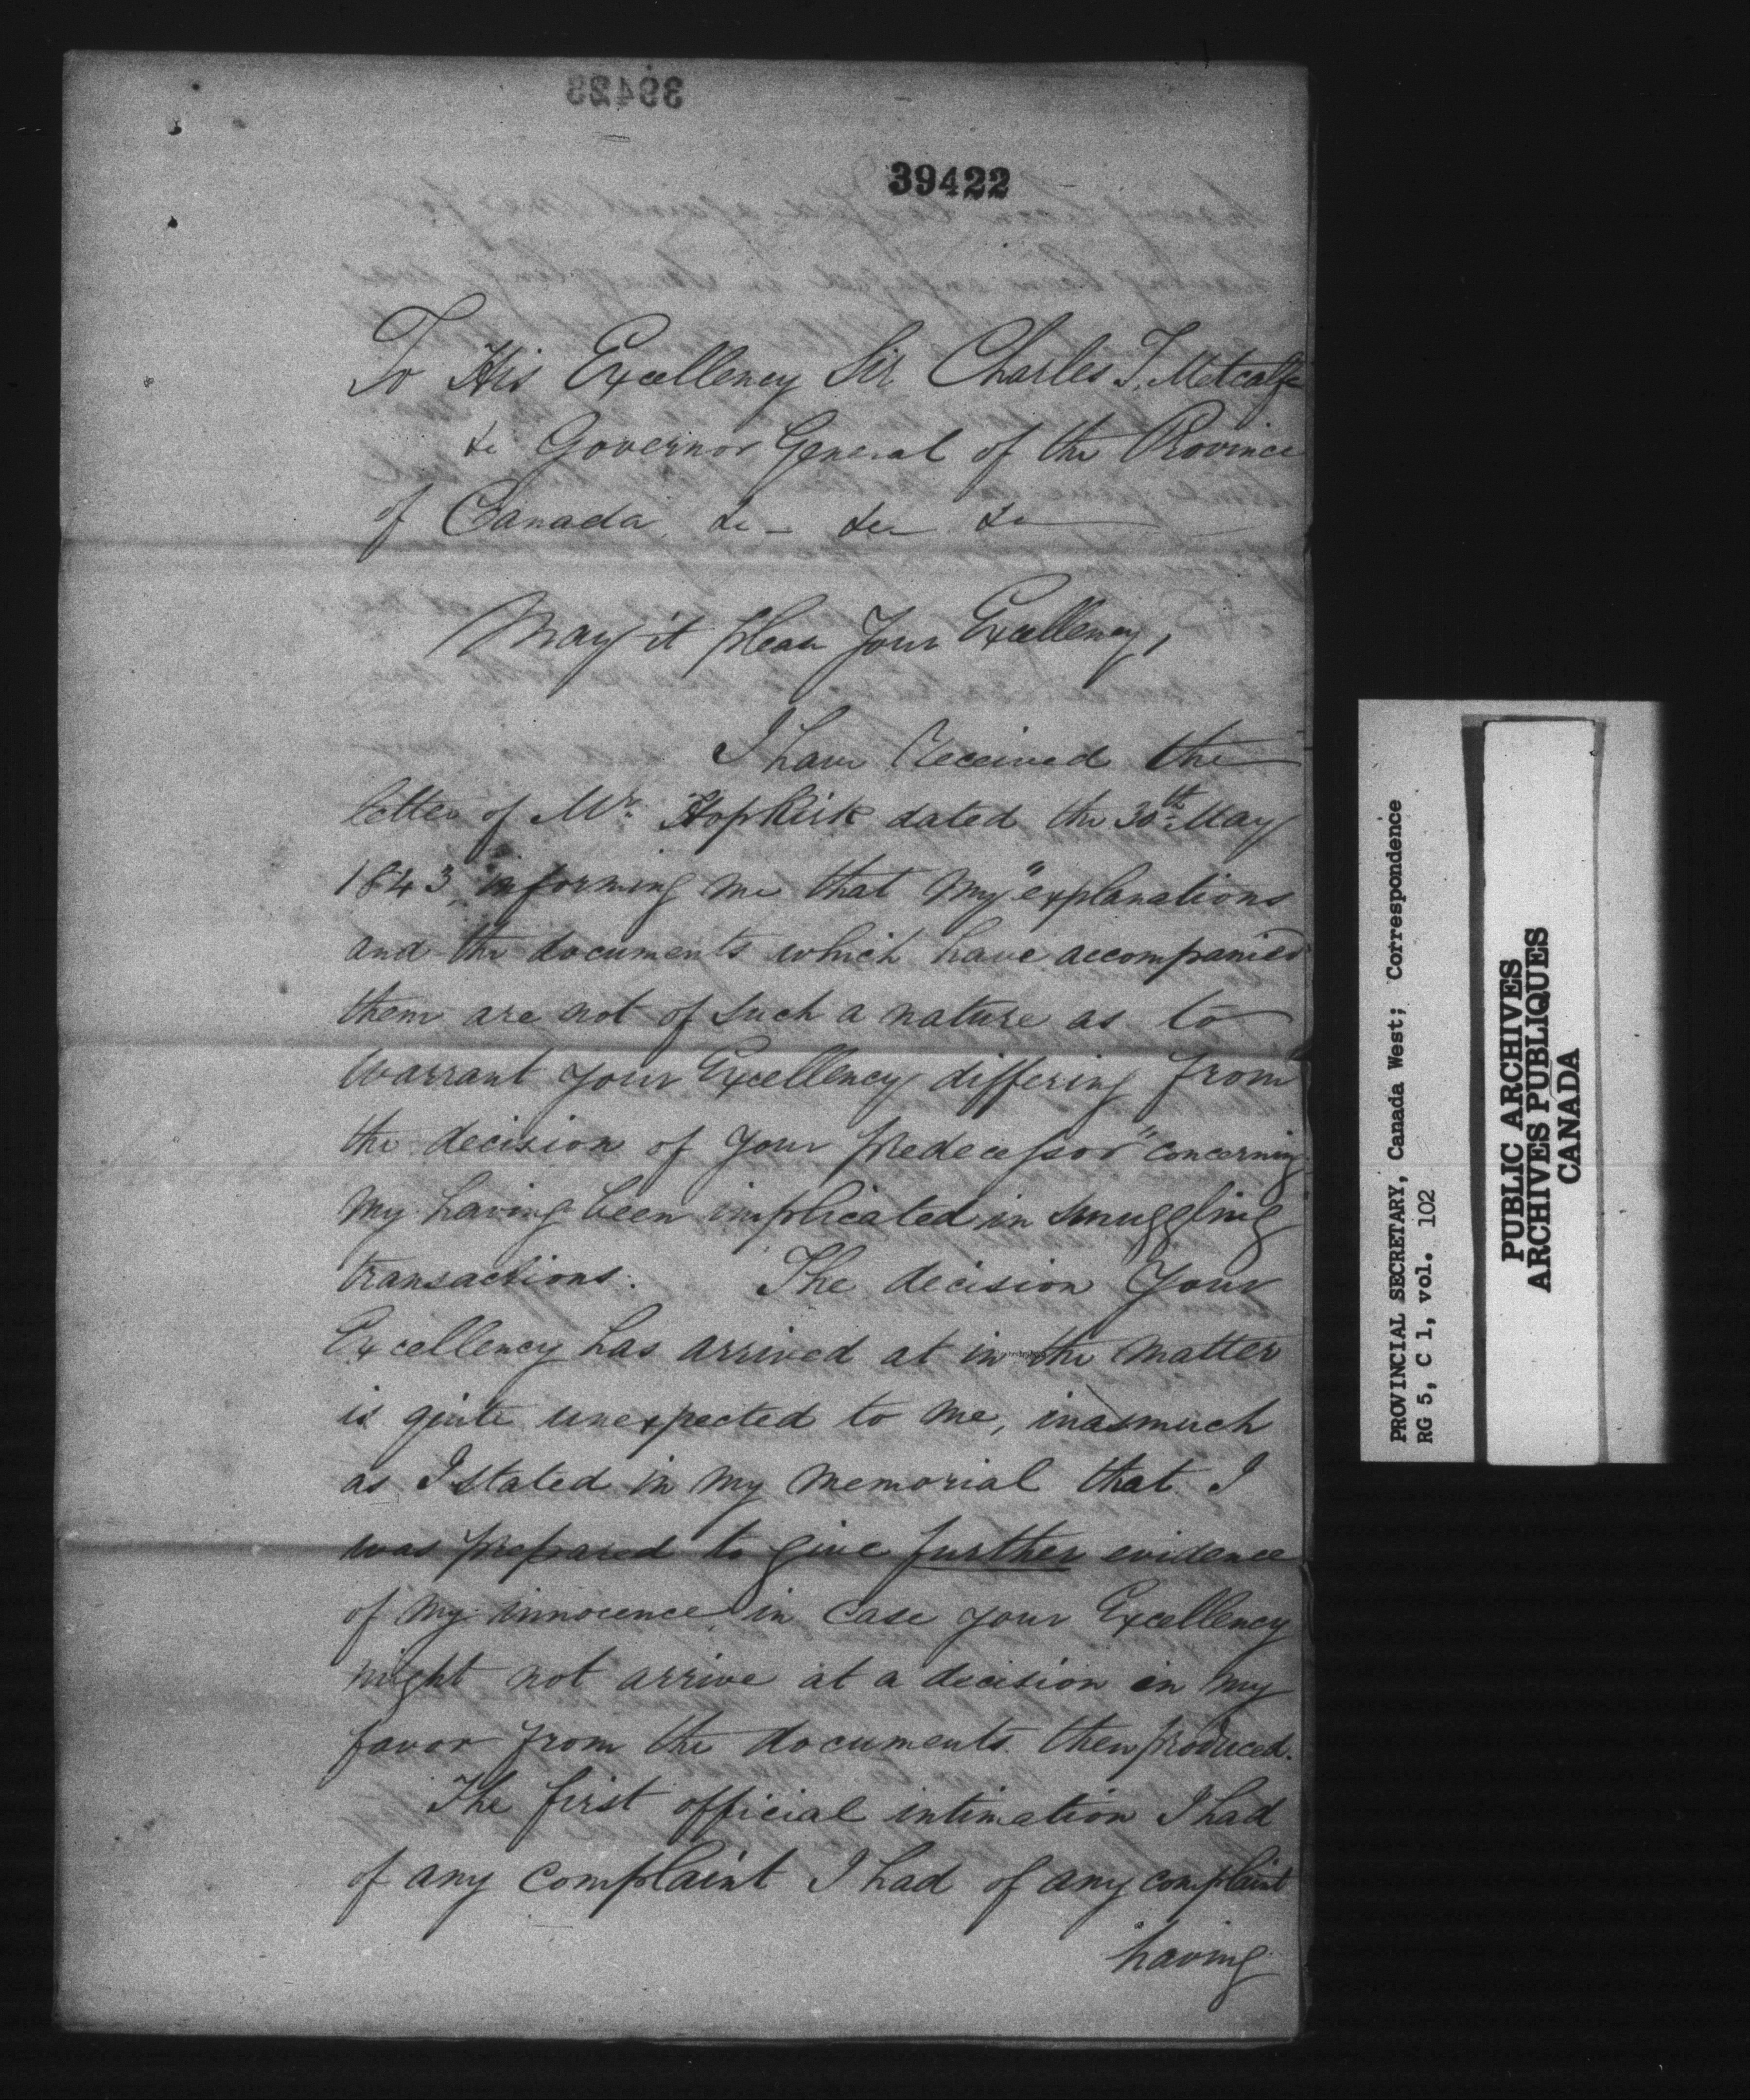 39423
39422
To His Excellency Sir Charles T. Metcalfe
&c Governor General of the Province
of Canada, &c - &c &c
May it please Your Excellency,
I have received the
letter of Mr. Hopkirk dated the 30th May
1843, informing me that my "explanations
and the documents which have accompanied
them are not of such a nature as to
warrant your Excellency differing from
the decision of your predecessor" concerning
my having been implicated in smuggling
transactions. The decision Your
Excellency has arrived at in the matter
is quite unexpected to me, inasmuch
as I stated in my memorial that I
was prepared to give further evidence
of my innocence in case your Excellency
might not arrive at a decision in my
favor from the documents then produced.
The first official intimation I had
of any complaint I had of any complaint
having
PROVINCIAL SECRETARY, Canada West; Correspondence
RG 5, C 1, vol. 102
PUBLIC ARCHIVES
ARCHIVES PUBLIQUES
CANADA